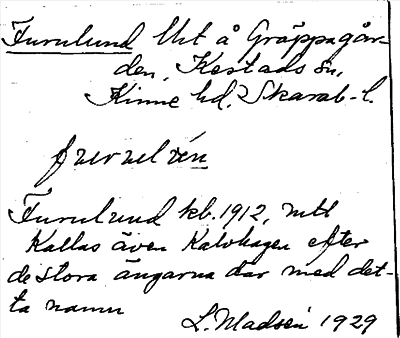 Furulund Utt å Gräppagår-
den, Kestads sn,
Kinne hd, Skarab-l.
Furulund kb. 1912, mtl
Kallas även Kalvhagen efter
de stora ängarna där med det-
ta namn
L. Madsén 1929